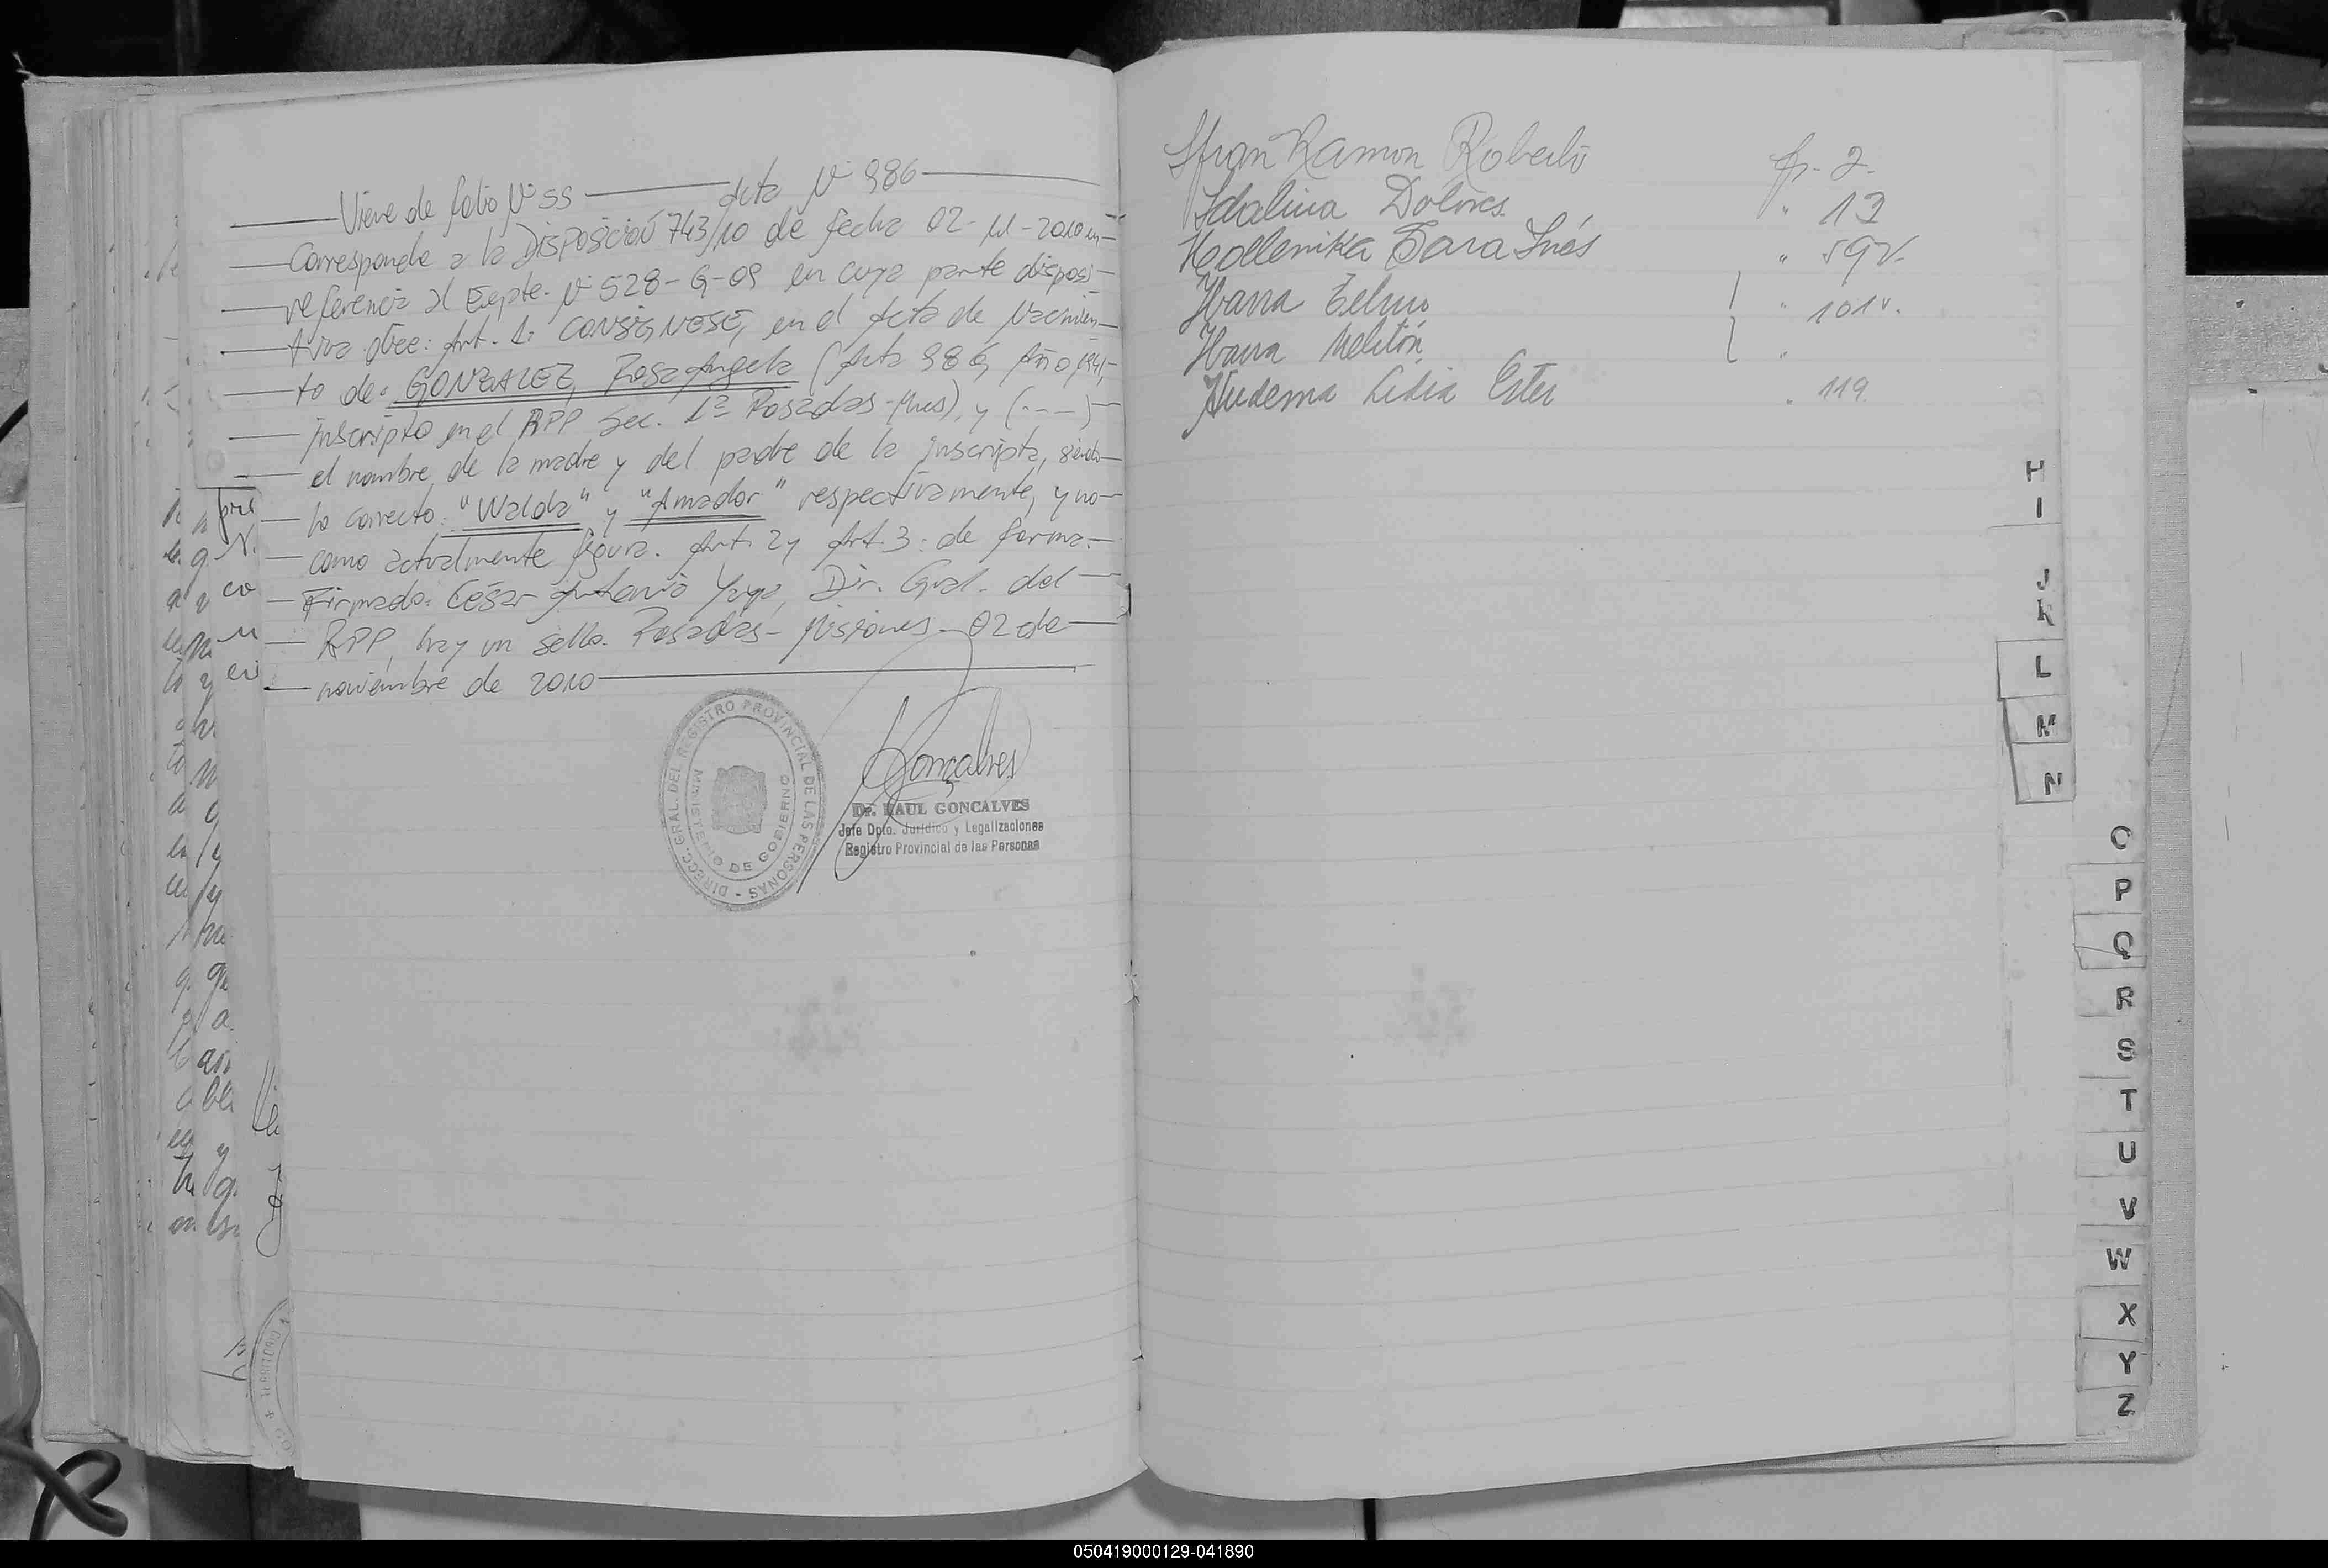 Viene de folio Nº 55 Acta Nº 986
Corresponde a la DISPOSICIÓN 743/10 de fecha 02-11-2010 en
referencia al Expte. Nº 528-G-09 en cuya parte disposi-
tiva dice: Art. 1: CONSIGNESE, en el Acta de Nacimien-
to de: GONZALEZ, Rosa Angela (Acta 986, Año 1941,
inscripta en el RPP Sec. 1ª Posadas-Mnes), y (---)
el nombre de la madre y del padre de la inscripta, siendo
lo correcto: "Walda" y "Amador" respectivamente, y no
como actualmente figura. Art. 2 y Art. 3: de forma.
Firmado: César Antonio Yaya, Dir. Gral. del
RPP, hay un sello. Posadas-Misiones 02 de
noviembre de 2010
DIRECC. GRAL. DEL REGISTRO PROVINCIAL DE LAS PERSONAS -
MINISTERIO DE GOBIERNO
Goncalves
Dr. RAUL GONCALVES
Jefe Dpto. Jurídico y Legalizaciones
Registro Provincial de las Personas
TERRITORIO
Ifran Ramon Roberto fs. 2
Idalina Dolores " 13
Sara Inés " 59v.
Ibarra Telmo " 101v.
Ibarra Melitón "
Lidia Ester " 119
H
I
J
K
L
M
N
O
P
Q
R
S
T
U
V
W
X
Y
Z
050419000129-041890